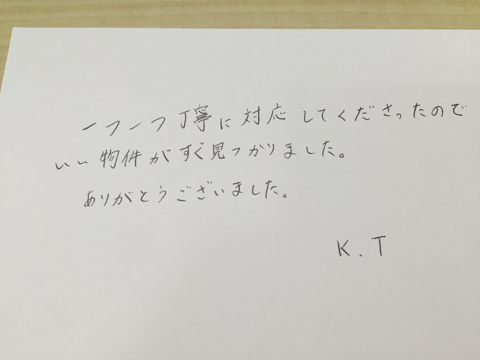 一つ一つ丁寧に対応してくださったので
いい物件がすぐ見つかりました。
ありがとうございました。
K.T